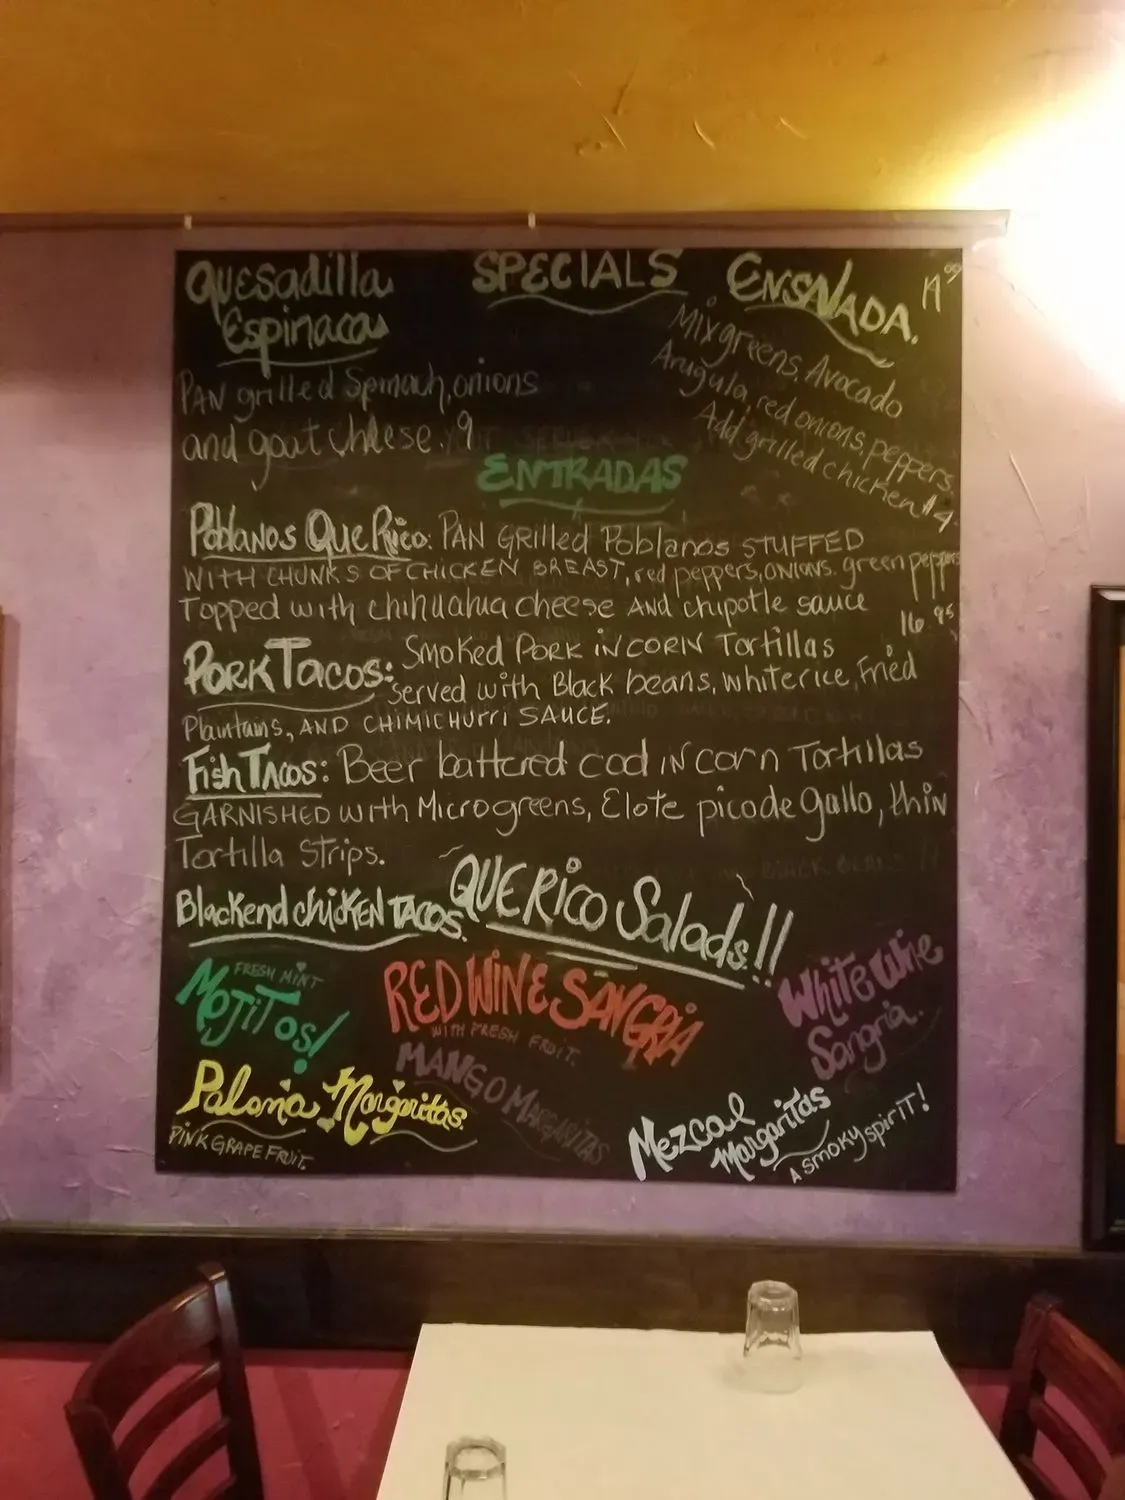 SPECIALS
Quesadilla
Espinacas
PAN grilled Spinach, onions
and goat cheese. 9
ENSALADA.
Mix greens, Avocado
Arugula, red onions, peppers
Add grilled chicken $4.
ENTRADAS
Poblanos Que Rico: PAN Grilled Poblanos STUFFED
WITH CHUNKS OF CHICKEN BREAST, red peppers, onions. green peppers
Topped with chihuahua cheese AND chipotle sauce
16.95
Pork Tacos: Smoked Pork in corn Tortillas
served with Black beans, white rice, Fried
Plantains, AND CHIMICHURRI SAUCE.
Fish Tacos: Beer battered cod in corn Tortillas
GARNISHED with Microgreens, Elote pico de gallo, thin
Tortilla Strips.
Blackend chicken TACOS.
QUE Rico Salads!!
FRESH MINT
MOJITOS!
RED WINE SANGRIA
WITH FRESH FRUIT.
White Wine
Sangria.
Paloma Margaritas
PINK GRAPE FRUIT.
MANGO MARGARITAS
Mezcal
Margaritas
A smoky spirit!